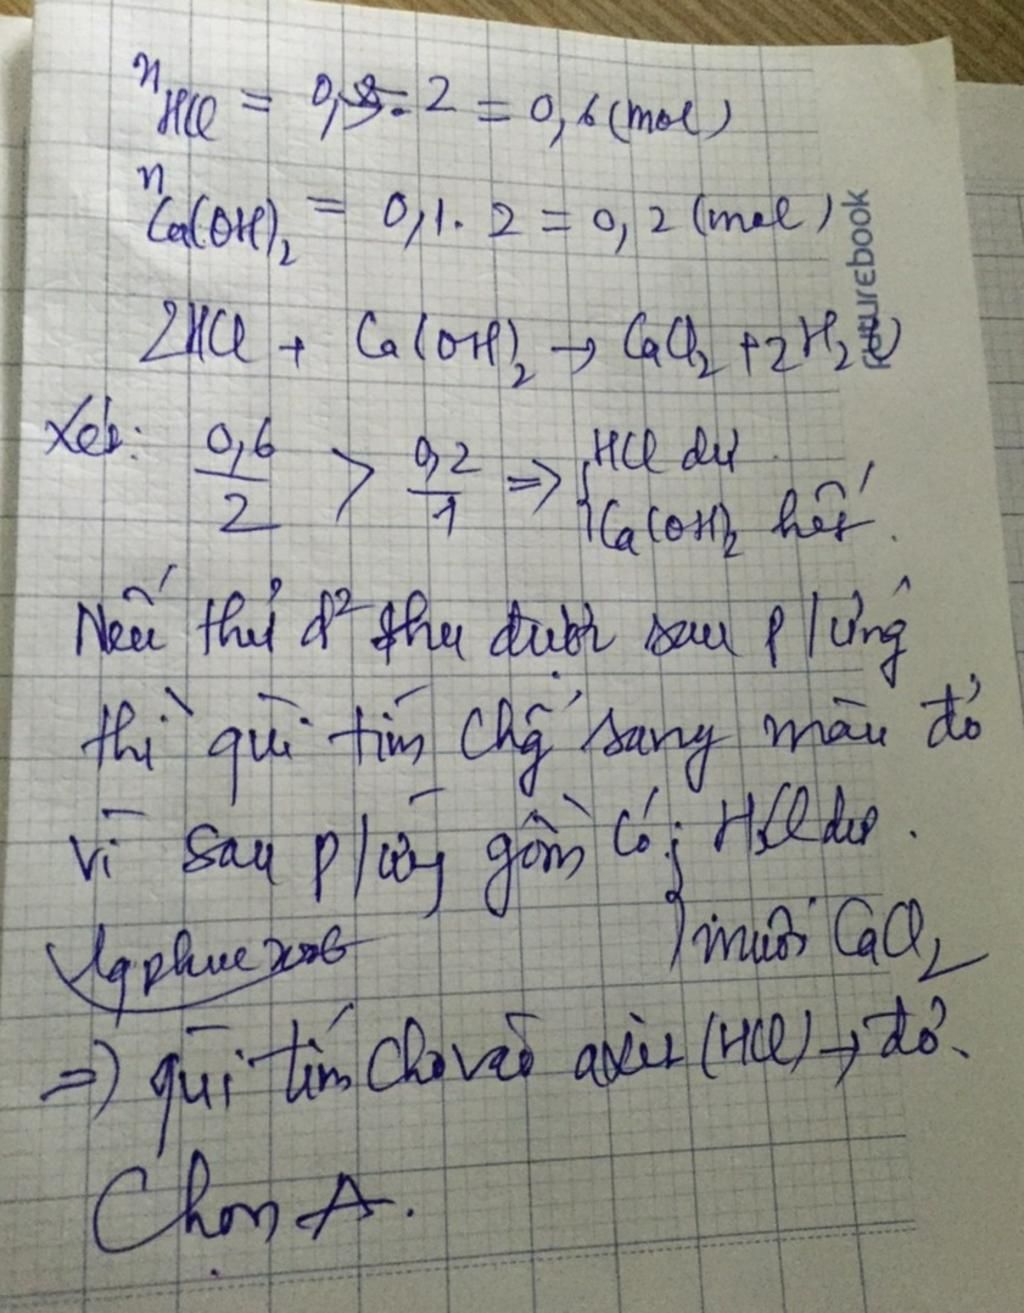 nHCl = 0,3. 2 = 0,6 (mol)
nCa(OH)2 = 0,1. 2 = 0,2 (mol)
futurebook
2HCl + Ca(OH)2 → CaCl2 + 2H2O
Xét: 0,6/2 > 0,2/1 => { HCl dư
Ca(OH)2 hết.
Nếu thử d² thu được sau p/ứng
thì quì tím chuyển sang màu đỏ
vì sau p/ứng gồm có: HCl dư.
muối CaCl2
=> quì tím cho vào axit (HCl) → đỏ.
Chọn A.